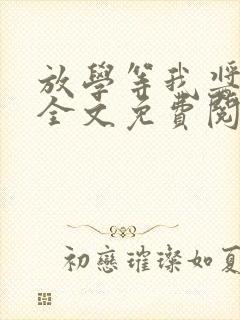 放學等我
全文免費閱
初戀璀璨如夏